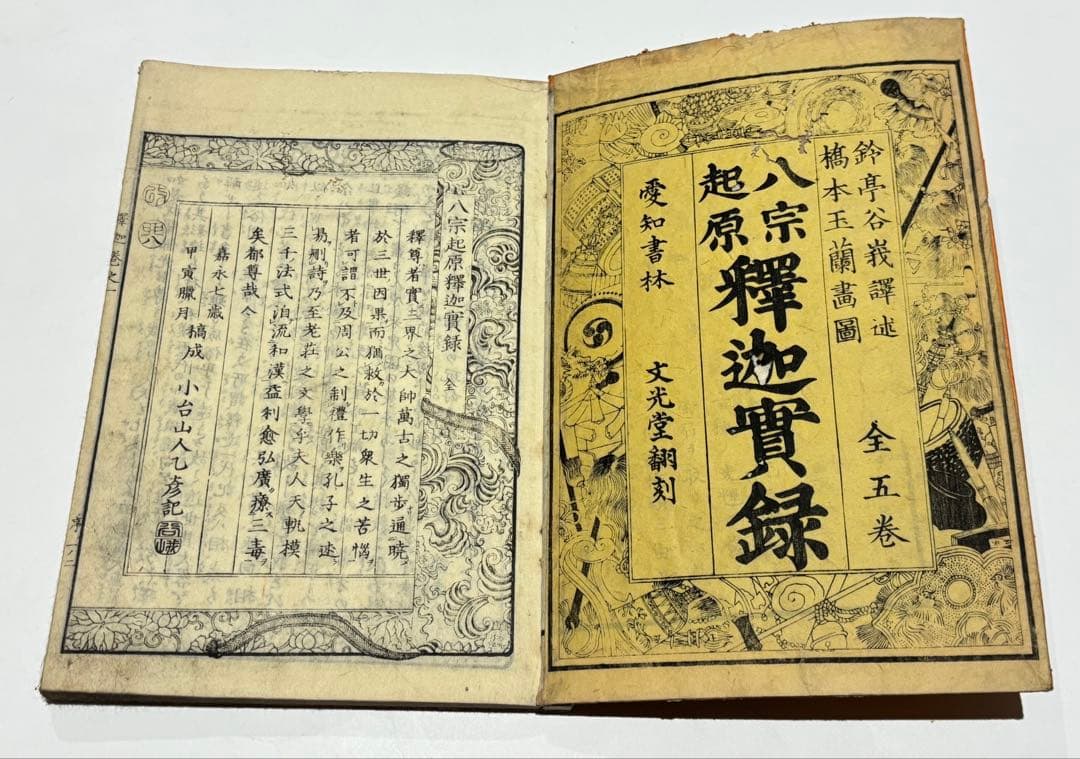 鈴亭谷峩譯述
橋本玉蘭畵圖
全五卷
八宗
起原
釋迦實録
愛知書林 文光堂翻刻
八宗起原釋迦實録 全
釋尊者實三界之大帥萬古之獨步通曉
於三世因果而猶救於一切衆生之苦惱
者可謂不及周公之制禮作樂孔子之述
易刪詩乃至老莊之文學乎夫人天軌模
三千法式洎流和漢益利愈弘廣療三毒
矣都尊哉今
嘉永七歳
甲寅臘月 稿成 小台山人乙彦記